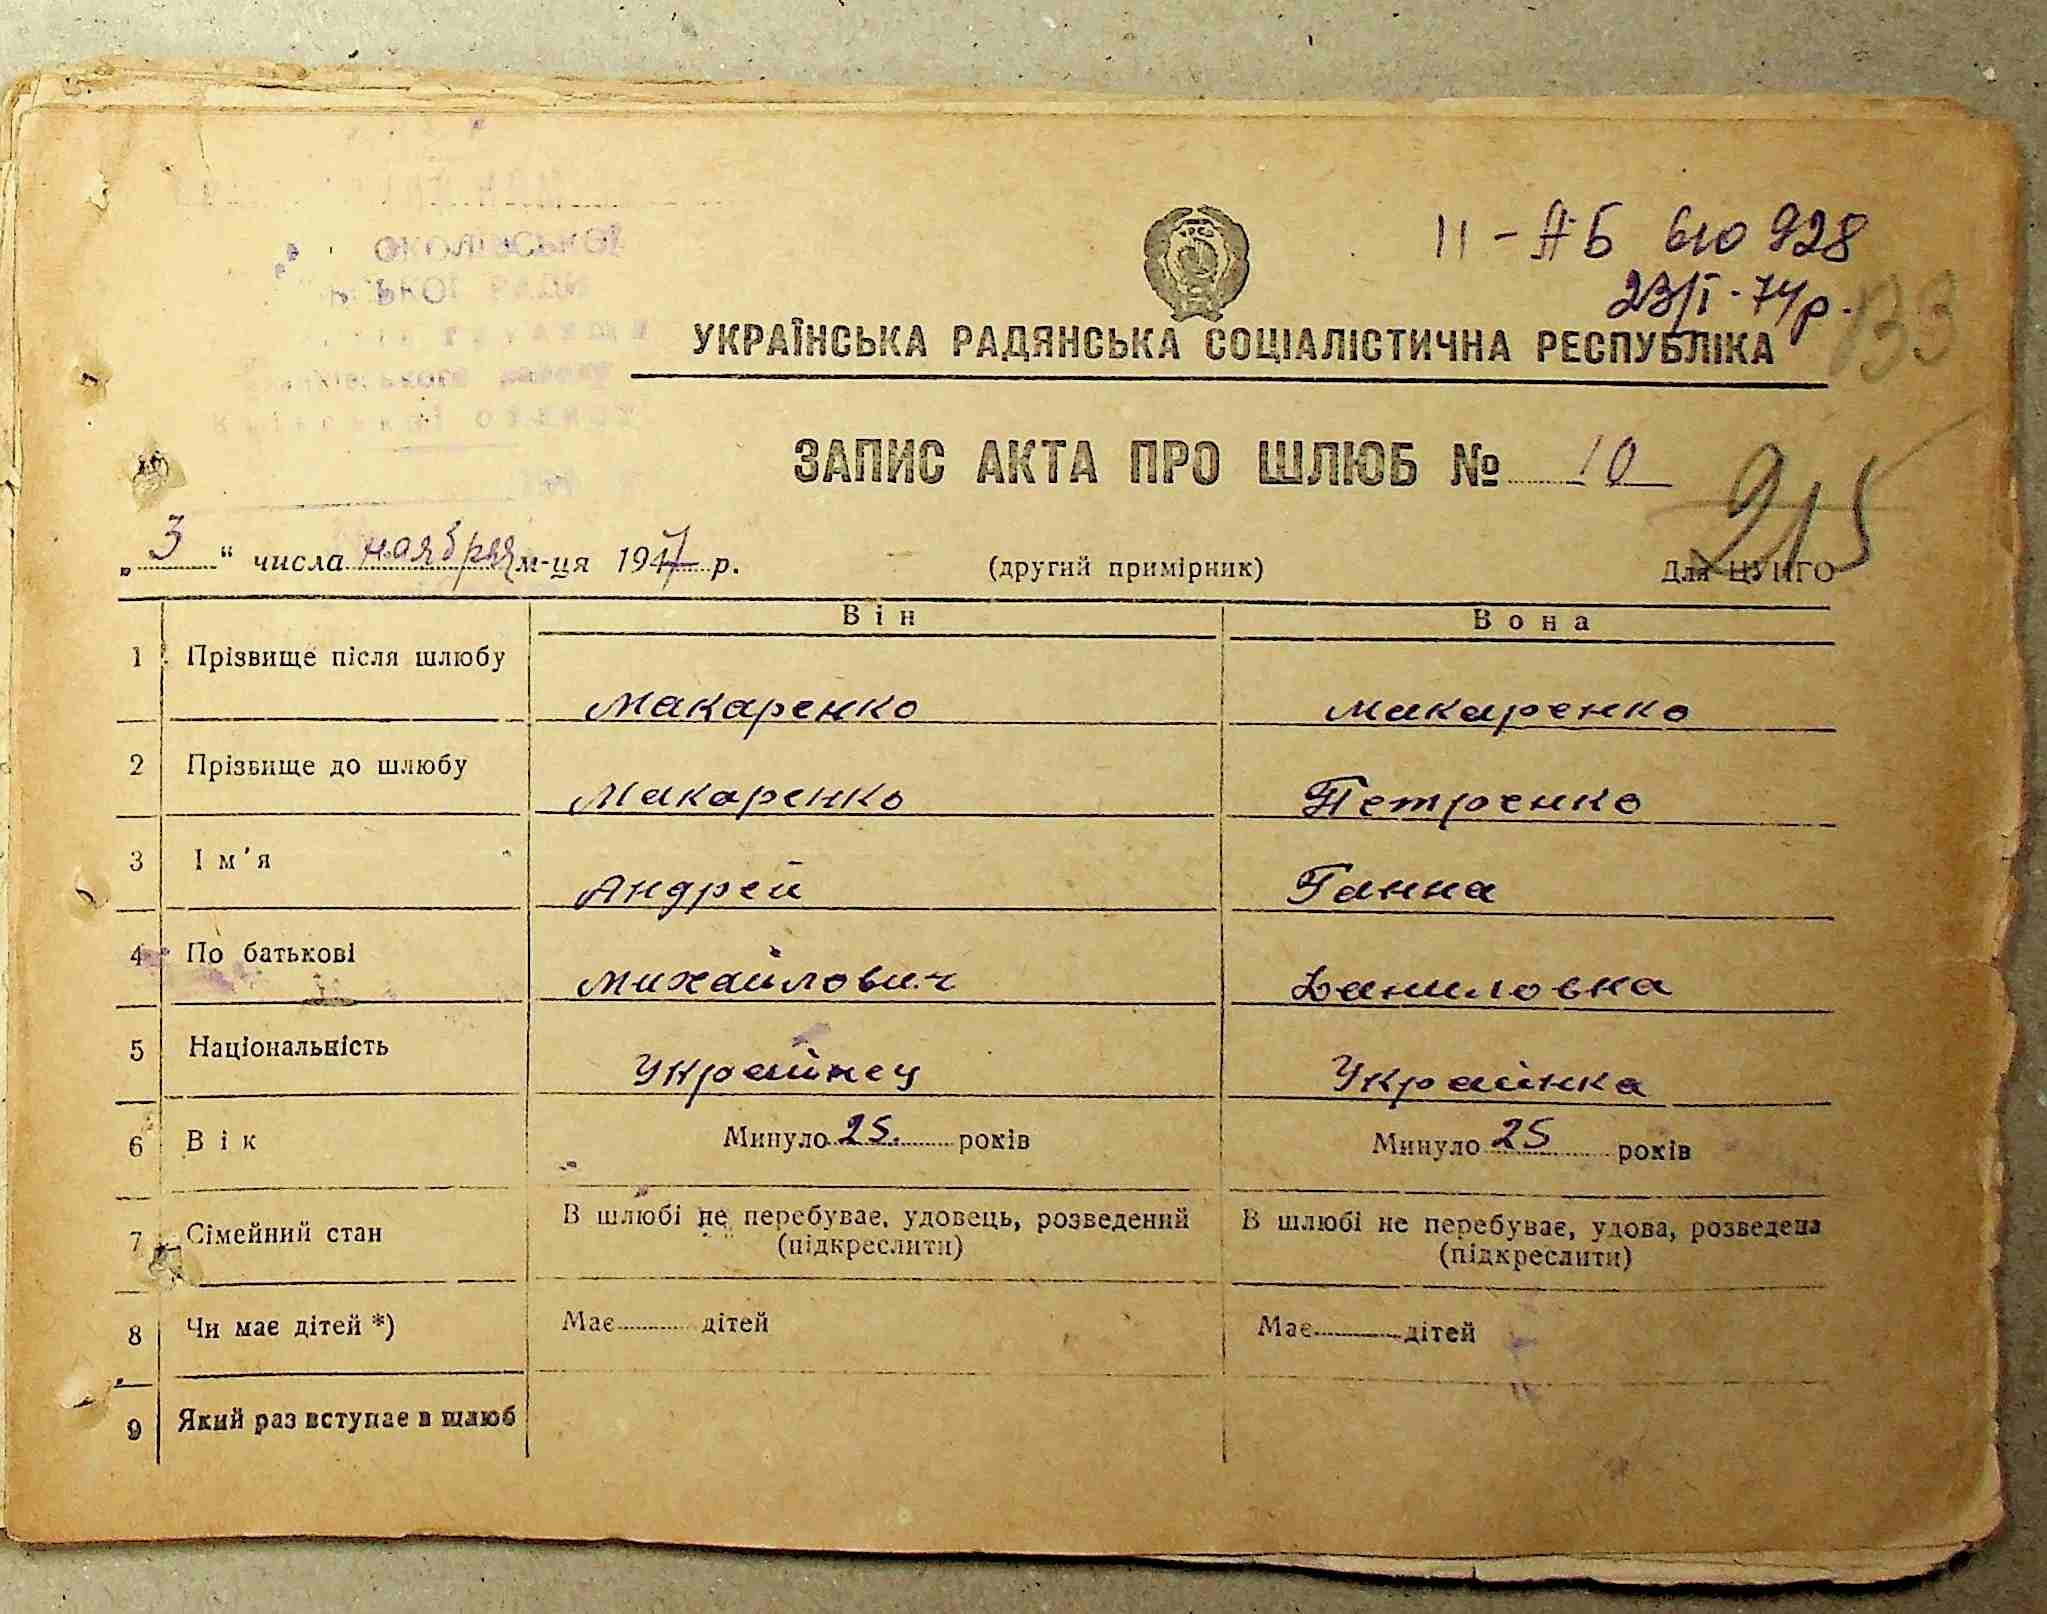 II - АБ 610 928
23/I - 74 р.
133
УКРАЇНСЬКА РАДЯНСЬКА СОЦІАЛІСТИЧНА РЕСПУБЛІКА
ЗАПИС АКТА ПРО ШЛЮБ № 10
215
„ 3 “ числа ноября м-ця 1947 р. (другий примірник) Для ЦУНГО
Він Вона
1 Прізвище після шлюбу Макаренко Макаренко
2 Прізвище до шлюбу Макаренко Петренко
3 Ім'я Андрей Ганна
4 По батькові Михайлович Даниловна
5 Національність Украйнец Украінка
6 Вік Минуло 25. років Минуло 25 років
7 Сімейний стан В шлюбі не перебуває, удовець, розведений В шлюбі не перебуває, удова, розведена
(підкреслити) (підкреслити)
8 Чи має дітей *) Має дітей Має дітей
9 Який раз вступає в шлюб